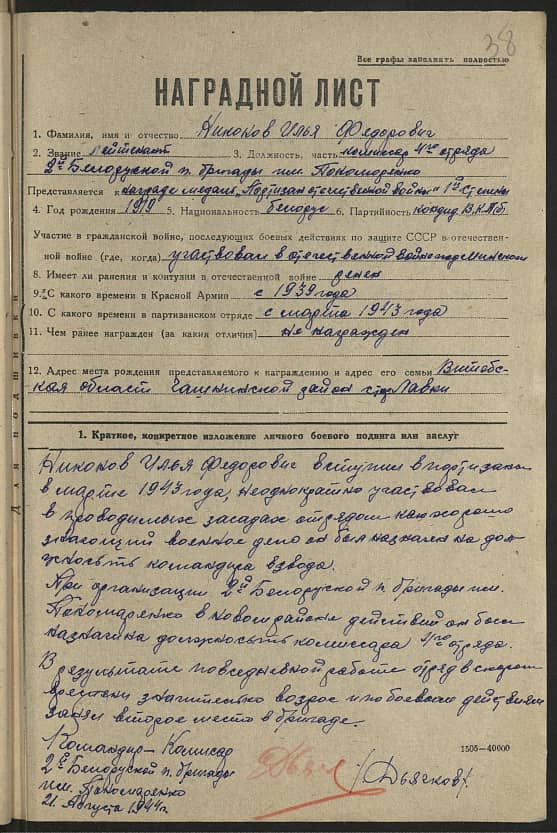 38
Все графы заполнять полностью
НАГРАДНОЙ ЛИСТ
1. Фамилия, имя и отчество Никонов Илья Федорович
2. Звание лейтенант 3. Должность, часть комиссар 4го отряда
2й Белоруской п. бригады им. Пономоренко
Представляется к награде медаль „Партизан отечественной войны" 1й степени
4. Год рождения 1919 5. Национальность белорус 6. Партийность кандид. В.К.П.б
Участие в гражданской войне, последующих боевых действиях по защите СССР в отечествен-
ной войне (где, когда) участвовал в отечественной войне под Минском
8. Имеет ли ранения и контузии в отечественной войне ранен
9. С какого времени в Красной Армии с 1939 года
10. С какого времени в партизанском отряде с марта 1943 года
11. Чем ранее награжден (за какия отличия) не награжден
12. Адрес места рождения представляемого к награждению и адрес его семьи Витебс-
кая область район Лавки
Для подшивки
1. Краткое, конкретное изложение личного боевого подвига или заслуг
Никонов Илья Федорович вступил в партизаны
в марте 1943 года, неоднократно участвовал
в проводимых засадах отрядом как хорошо
знающий военное дело он был назначен на дол
жность командира взвода.
При организации 2й Белоруской п. бригады им.
Пономаренко в новом районе действий он был
назначен на должность комиссара 4го отряда.
В результате повседневной работе отряд в скором
времени значительно возрос и по боевым действиям
занял второе место в бригаде.
Командир-Комисар
2й Белоруской п. бригады
им. Пономаренко
21. Августа 1944г.
/Дьячков/
1505—40000